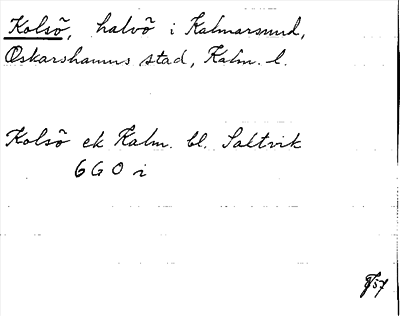 Kolsö, halvö i Kalmarsund,
Oskarshamns stad, Kalm. l.
Kolsö ek Kalm. bl. Saltvik
6 G 0 i